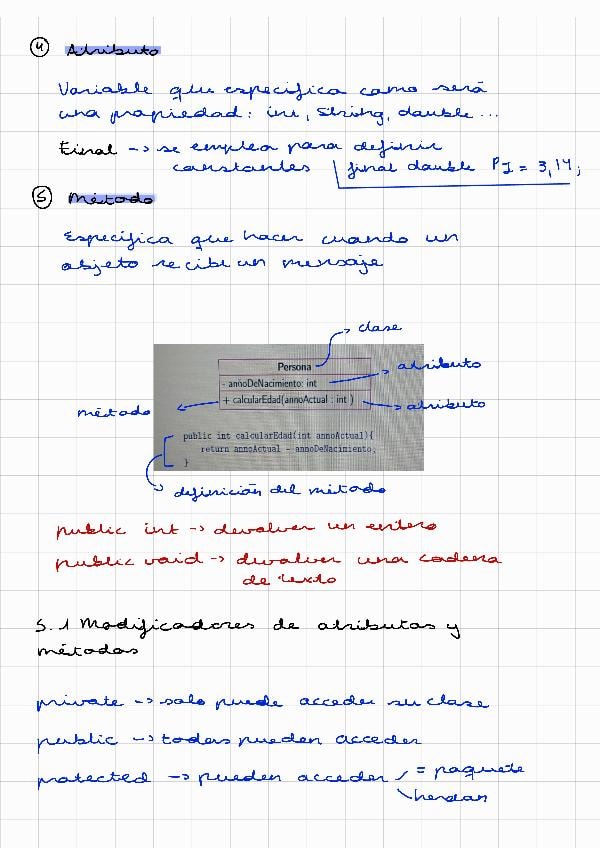 4 Atributo
Variable que especifica como será
una propiedad: int, String, double...
Final -> se emplea para definir
constantes | final double PI = 3,14;
5 Método
Especifica que hacer cuando un
objeto recibe un mensaje
clase
Persona
atributo
- annoDeNacimiento: int
+ calcularEdad(annoActual : int )
atributo
método
public int calcularEdad(int annoActual){
return annoActual - annoDeNacimiento;
}
definición del método
public int -> devolver un entero
public void -> devolver una cadena
de texto
5.1 Modificadores de atributos y
métodos
private -> solo puede acceder su clase
public -> todos pueden acceder
protected -> pueden acceder = paquete
heredan